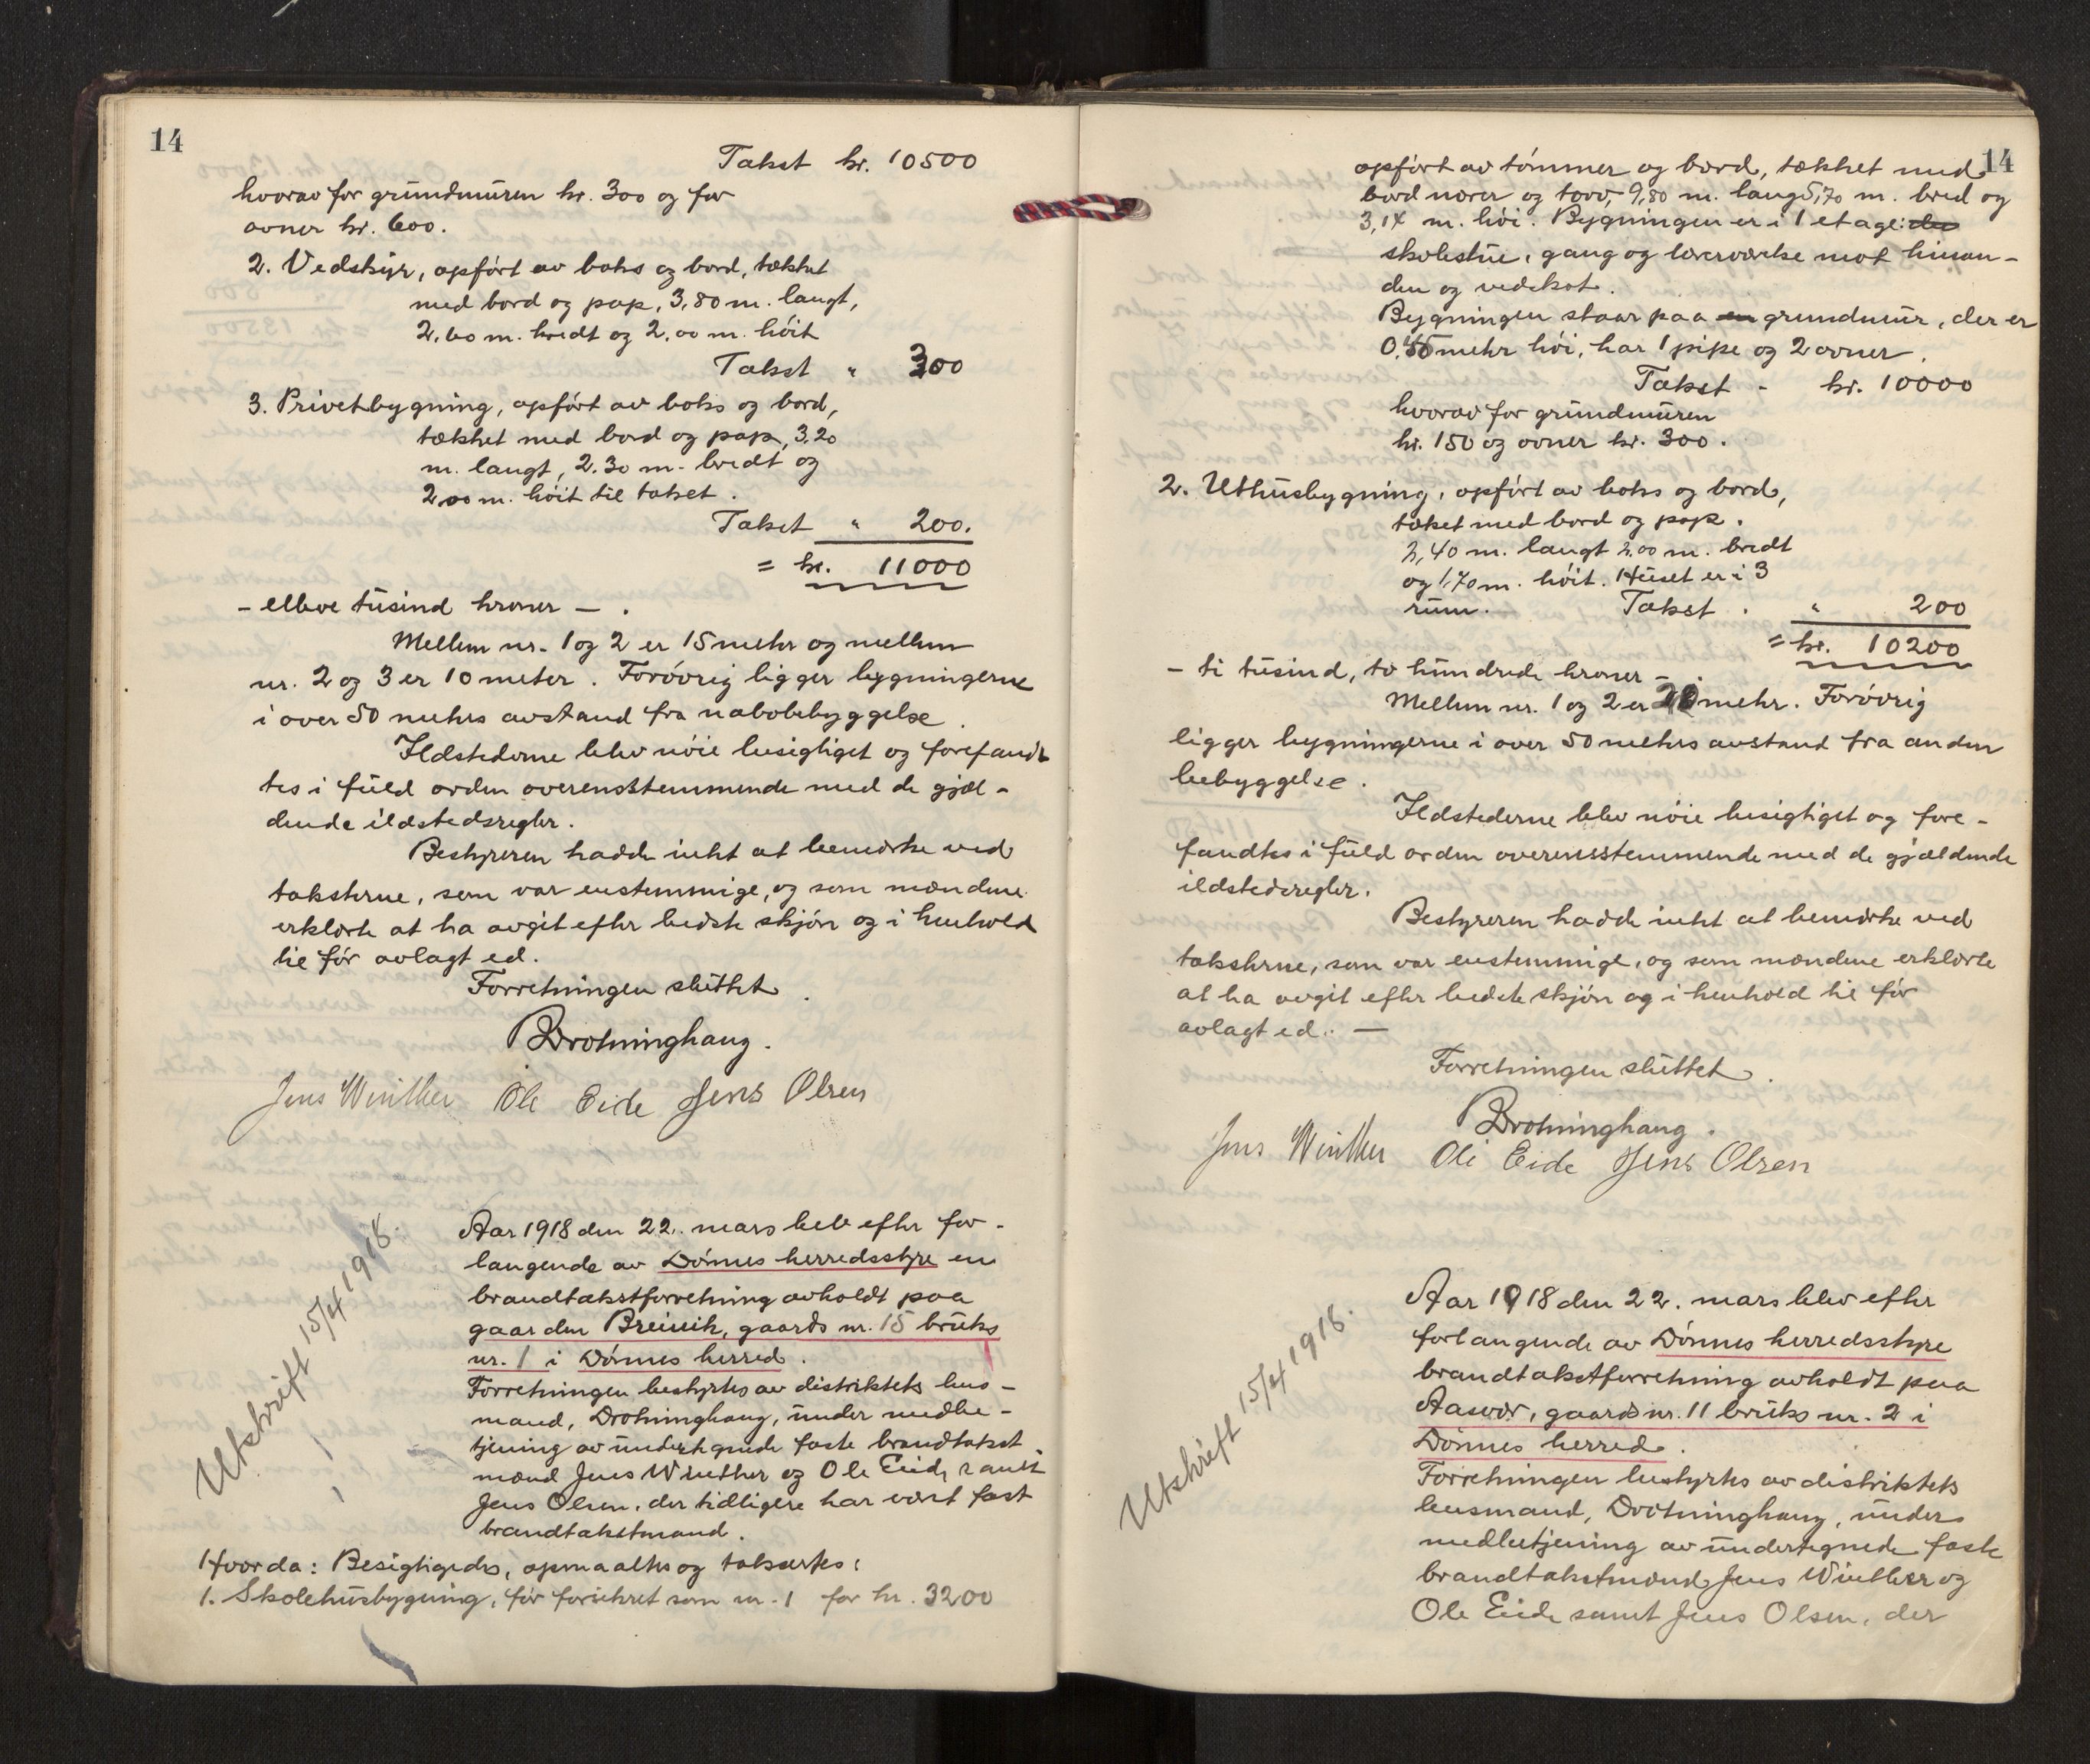 14
Takst kr. 10500
hvorav for grundmuren kr. 300 og for
ovner kr. 600.
2. Vedskjur, opført av boks og bord, tækket
med bord og pap, 3,80 m. langt,
2,60 m. bredt og 2,00 m. høit
Takst " 300
3. Privetbygning, opført av boks og bord,
tækket med bord og pap, 3,20
m. langt, 2.30 m. bredt og
2,00 m. høit til taket.
Takst " 200.
= kr. 11000
- elleve tusind kroner - .
Mellem nr. 1 og 2 er 15 meter og mellem
nr. 2 og 3 er 10 meter. Forøvrig ligger bygningerne
i over 50 meters avstand fra nabobebyggelse.
Ildstederne blev nøie besigtiget og forefand-
tes i fuld orden overensstemmende med de gjæl-
dende ildstedsregler.
Bestyreren hadde intet at bemerke ved
taksterne, som var enstemmige, og som mændene
erklærte at ha avgit efter bedste skjøn og i henhold
til før avlagt ed.
Forretningen sluttet.
Drotninghaug.
Jens Winther Ole Eide Jens Olsen
Utskrift 15/4 1918.
Aar 1918 den 22. mars blev efter for-
langende av Dønnes herredsstyre en
brandtakstforretning avholdt paa
gaarden Breivik, gaards nr. 15 bruks
nr. 1 i Dønnes herred.
Forretningen bestyrtes av distriktets lens-
mand, Drotninghaug, under medbe-
tjening av undertegnede faste brandtakst-
mænd Jens Winther og Ole Eide samt
Jens Olsen, der tidligere har vært fast
brandtakstmand.
Hvorda: Besigtigedes, opmaaltes og taksertes:
1. Skolehusbygning, før forsikret som nr. 1 for kr. 3200
14
opført av tømmer og bord, tækket med
bord næver og torv, 9,80 m. lang 5,70 m. bred og
3,14 m. høi. Bygningen er i 1 etage:
skolestue, gang og lærerværelse mot hinan-
den og vedskot.
Bygningen staar paa en grundmur, der er
0,45 meter høi, har 1 pipe og 2 ovner.
Takst - kr. 10000
hvorav for grundmuren
kr. 150 og ovner kr. 300.
2. Uthusbygning, opført av boks og bord,
tæket med bord og pap.
3,40 m. langt 2.00 m. bredt
og 1,70 m. høit. Huset er i 3
rum. Takst . " 200
= kr. 10200
- ti tusind, to hundrede kroner - .
Mellem nr. 1 og 2 er meter. Forøvrig
ligger bygningerne i over 50 meters avstand fra anden
bebyggelse.
Ildstederne blev nøie besigtiget og fore-
fandtes i fuld orden overensstemmende med de gjældende
ildstedsregler.
Bestyreren hadde intet at bemerke ved
taksterne, som var enstemmige, og som mændene erklærte
at ha avgit efter bedste skjøn og i henhold til før
avlagt ed. -
Forretningen sluttet.
Drotninghaug.
Jens Winther Ole Eide Jens Olsen
Utskrift 15/4 1918.
Aar 1918 den 22. mars blev efter
forlangende av Dønnes herredsstyre
brandtakstforretning avholdt paa
Aasvær, gaards nr. 11 bruks nr. 2 i
Dønnes herred.
Forretningen bestyrtes av distriktets
lensmand, Drotninghaug, under
medbetjening av undertegnede faste
brandtakstmænd Jens Winther og
Ole Eide samt Jens Olsen, der